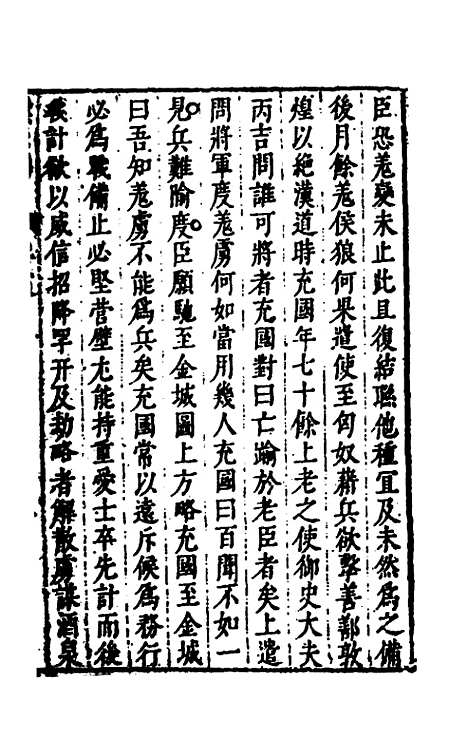 臣恐羗變未止此且復結聨他種宜及未然爲之備
後月餘羗侯狼何果遣使至匈奴藉兵欲擊善鄯敦
煌以絶漢道時充國年七十餘上老之使御史大夫
丙吉問誰可將者充國對曰亡踰於老臣者矣上遣
問將軍度羗虜何如當用幾人充國曰百聞不如一
見兵難隃度臣願馳至金城圖上方略充國至金城
曰吾知羗虜不能爲兵矣充國常以遠斥候爲務行
必爲戰備止必堅營壁尤能持重愛士卒先計而後
戰計欲以威信招降罕开及劫略者解散虜謀酒泉